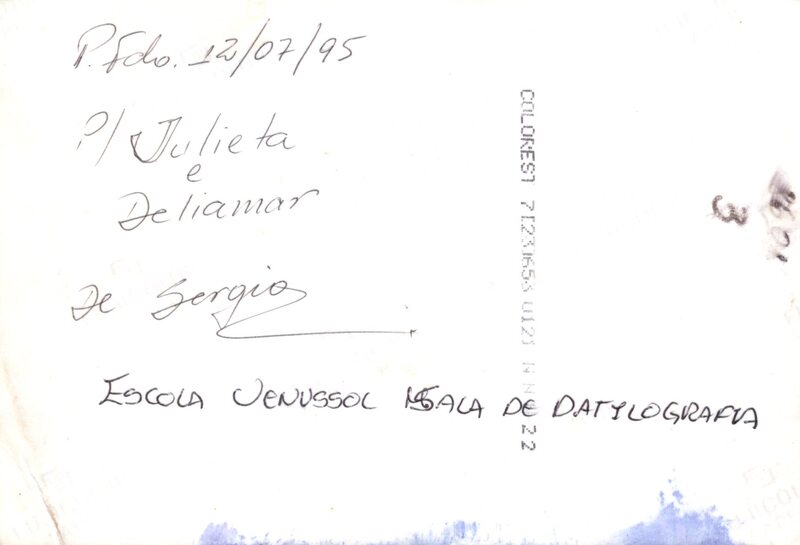 P. Fdo. 12/07/95
P/ Julieta
e
Deliamar
De Sergio
ESCOLA VENUSSOL SALA DE DATYLOGRAFIA
COLOREST
3